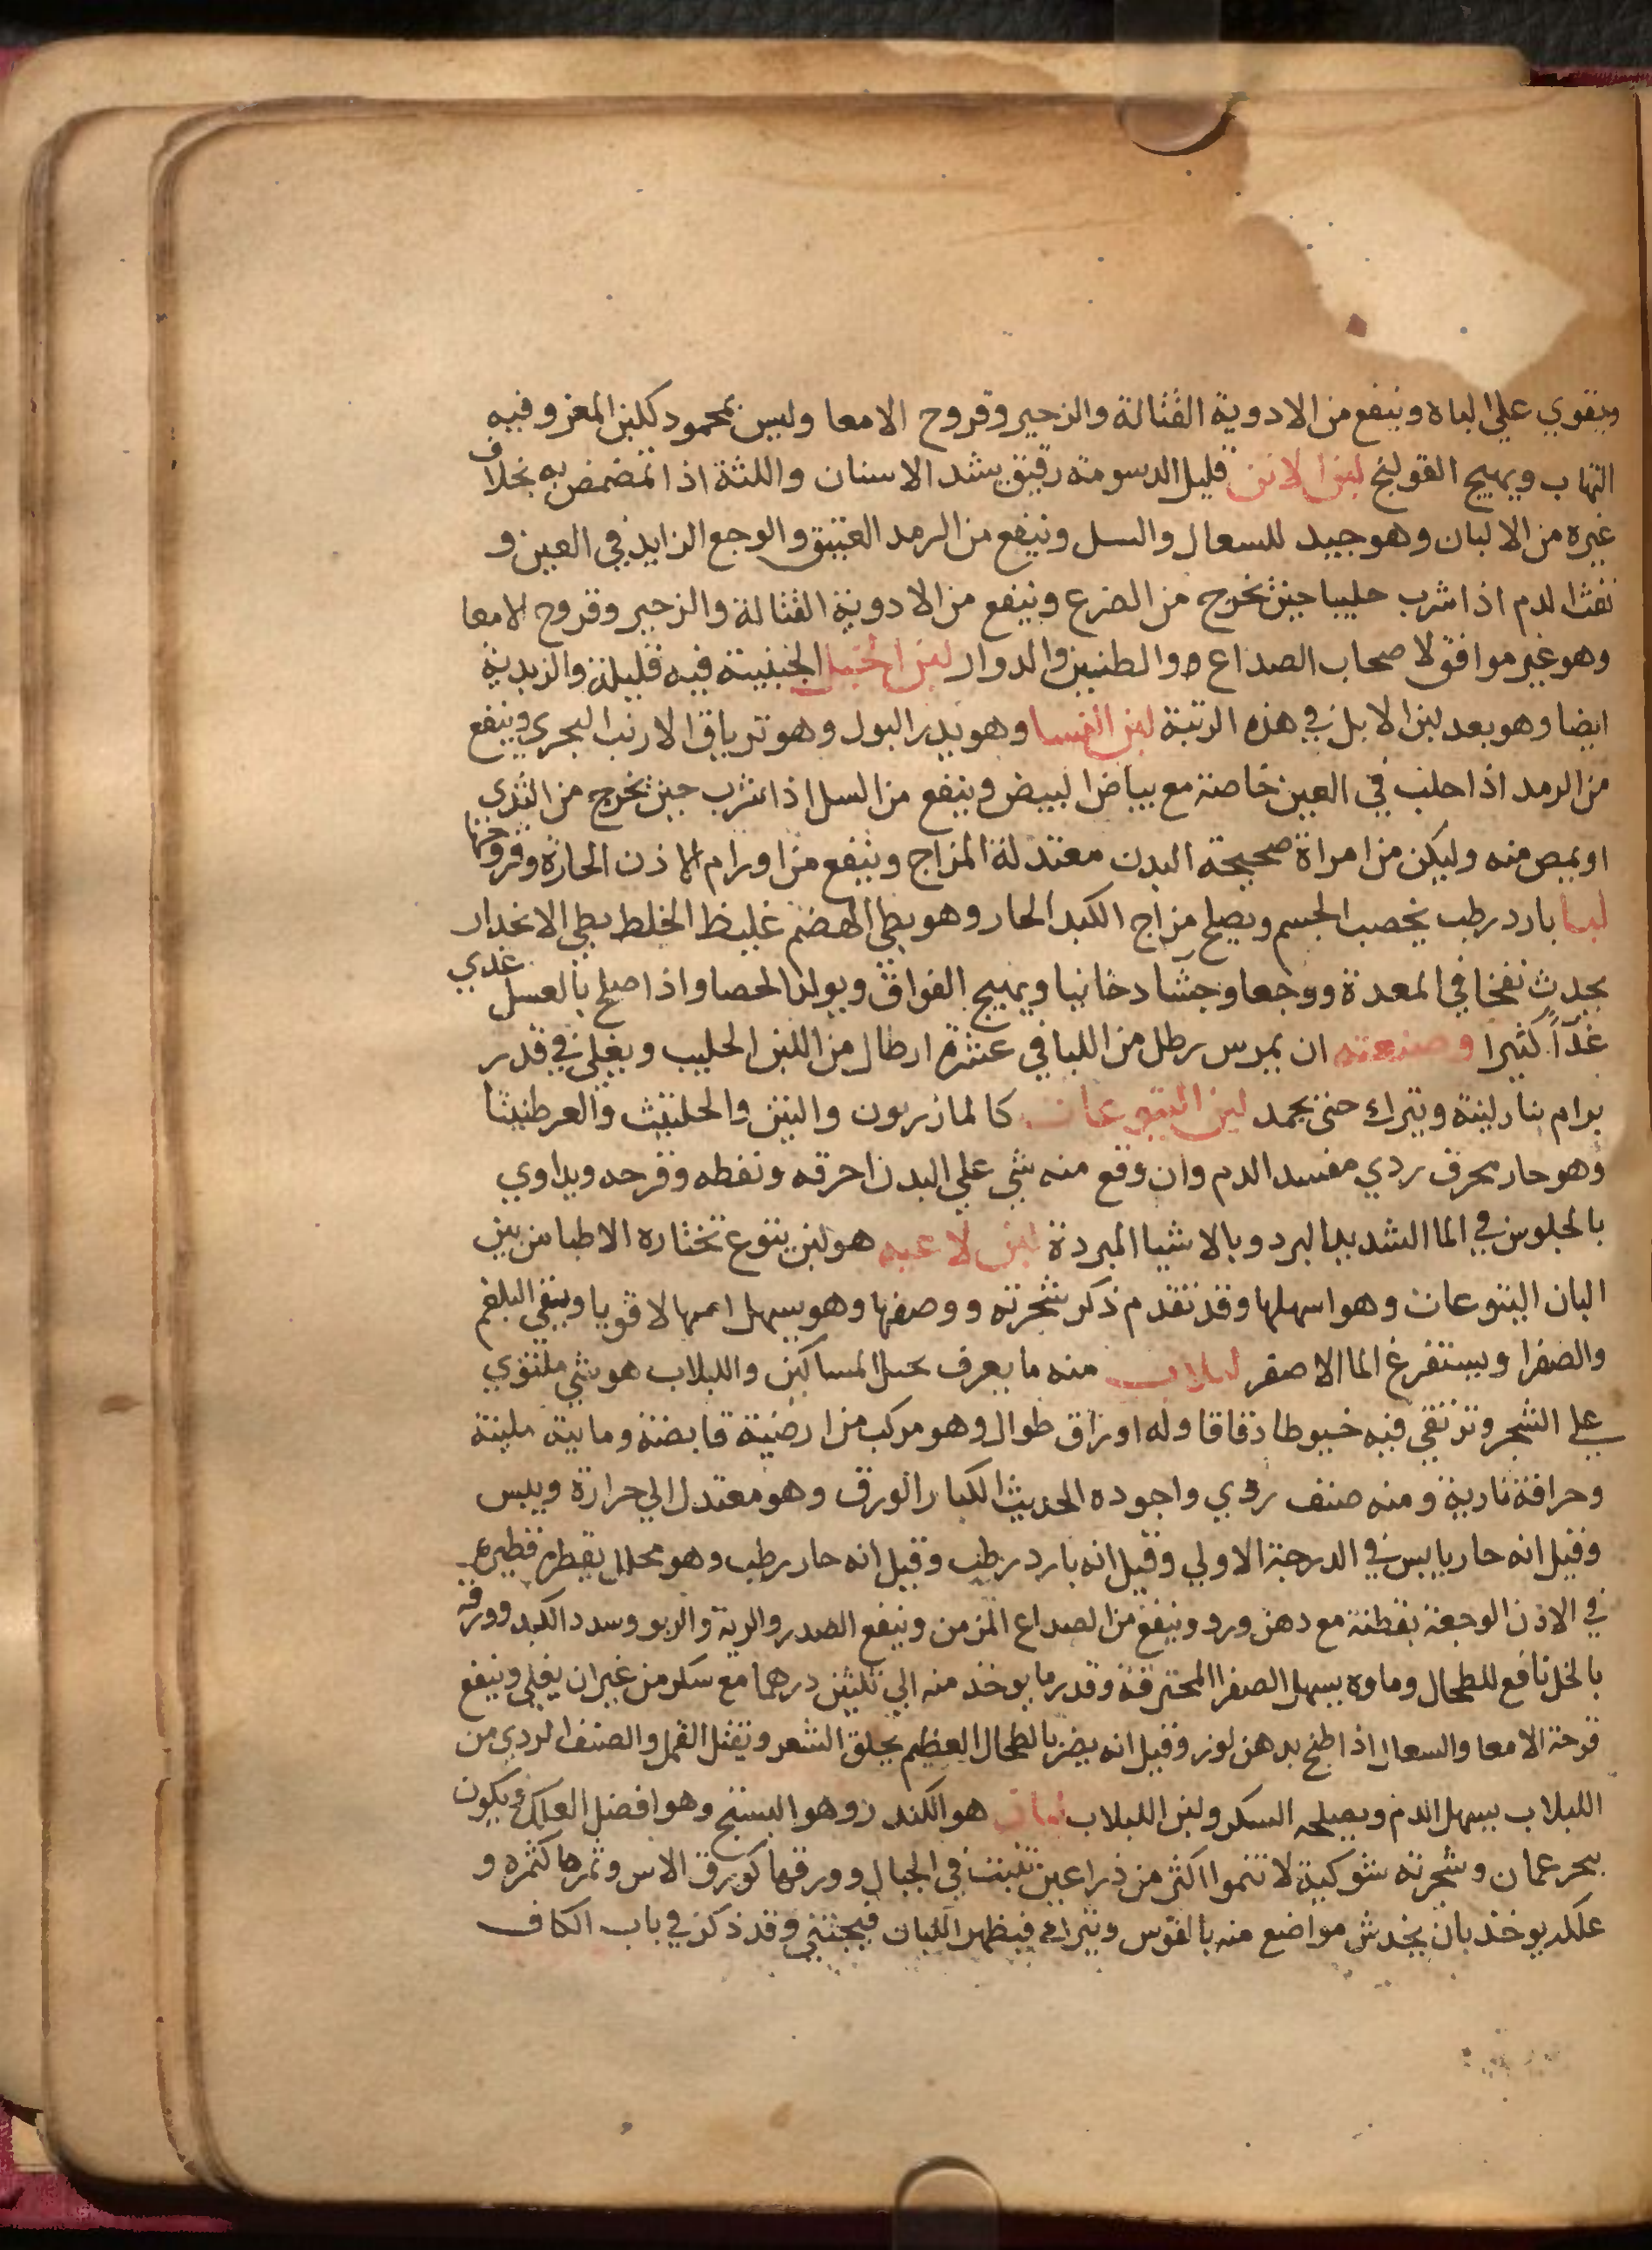 ويقوي علي الباه وينفع من الادوية القتالة والزحير وقروح الامعا وليس بمحمود كلبن المعز وفيه
التهاب ويهيج القولنج لبن الاتن قليل الدسومة رقيق يشد الاسنان واللثة اذا تمضمض به بخلاف
غيره من الالبان وهو جيد للسعال والسل وينفع من الرمد العتيق والوجع الزايد في العين و
نفث الدم اذا شرب حليبا حين يخرج من الضرع وينفع من الادوية القتالة والزحير وقروح الامعا
وهو غير موافق لاصحاب الصداع والطنين والدوار لبن الخيل الجبنية فيه قليلة والزبدية
ايضا وهو بعد لبن الابل في هذه الرتبة لبن النسا وهو يدر البول وهو ترياق الارنب البحري وينفع
من الرمد اذا حلب في العين خاصة مع بياض البيض وينفع من السل اذا شرب حين يخرج من الثدي
او يمص منه وليكن من امراة صحيحة البدن معتدلة المزاج وينفع من اورام الاذن الحارة وقروحها
لبا بارد رطب يخصب الجسم ويصلح مزاج الكبد الحار وهو بطي الهضم غليظ الخلط بطي الانحدار
يحدث نفخا في المعدة ووجعا وجشا دخانيا ويهيج الفواق ويولد الحصا واذا اصلح بالعسل غدي
غدآً كثيرا وصنعته ان يمرس رطل من اللبا في عشرة ارطال من اللبن الحليب ويغلي في قدر
برام بنار لينة ويترك حتي يجمد لبن اليتوعات كالمازريون والتين والحلتيث والعرطنيثا
وهو حار محرق ردي مفسد الدم وان وقع منه شي علي البدن احرقه ونفطه وقرحه ويداوي
بالجلوس في الما الشديد البرد وبالاشيا المبردة لبن لاعيه هو لبن يتوع تختاره الاطبا من بين
البان اليتوعات وهو اسهلها وقد تقدم ذكر شجرته ووصفها وهو يسهل اسهالا قويا وينقي البلغم
والصفرا ويستفرغ الما الاصفر لبلاب منه ما يعرف بحبل المساكين واللبلاب هو شي ملتوي
علي الشجر وترتقي فيه خيوطا دقاقا وله اوراق طوال وهو مركب من ارضية قابضة ومايية ملينة
وحرافة نارية ومنه صنف ردي واجوده الحديث الكبار الورق وهو معتدل الي حرارة ويبس
وقيل انه حار يابس في الدرجة الاولي وقيل انه بارد رطب وقيل انه حار رطب وهو محلل يقطر قطيره
في الاذن الوجعة بقطنة مع دهن ورد وينفع من الصداع المزمن وينفع الصدر والرية والربو وسدد الكبد وورقه
بالخل نافع للطحال وماوه يسهل الصفرا المحترقة وقدر ما يوخذ منه الي ثلثين درهما مع سكر من غير ان يغلي وينفع
قرحة الامعا والسعال اذا طبخ بدهن لوز وقيل انه يضر بالطحال العظيم يحلق الشعر ويقتل القمل والصنف الردي من
اللبلاب يسهل الدم ويصلحه السكر ولبن اللبلاب لبان هو الكندر وهو البستج وهو افضل العلك ويكون
ببحر عمان وشجرته شوكية لا تنموا اكثر من ذراعين تنبت في الجبال وورقها كورق الاس وثمرها كثمره و
علكه يوخذ بان يخدش مواضع منه بالفوس ويترك فيظهر اللبان فيجتني وقد ذكر في باب الكاف